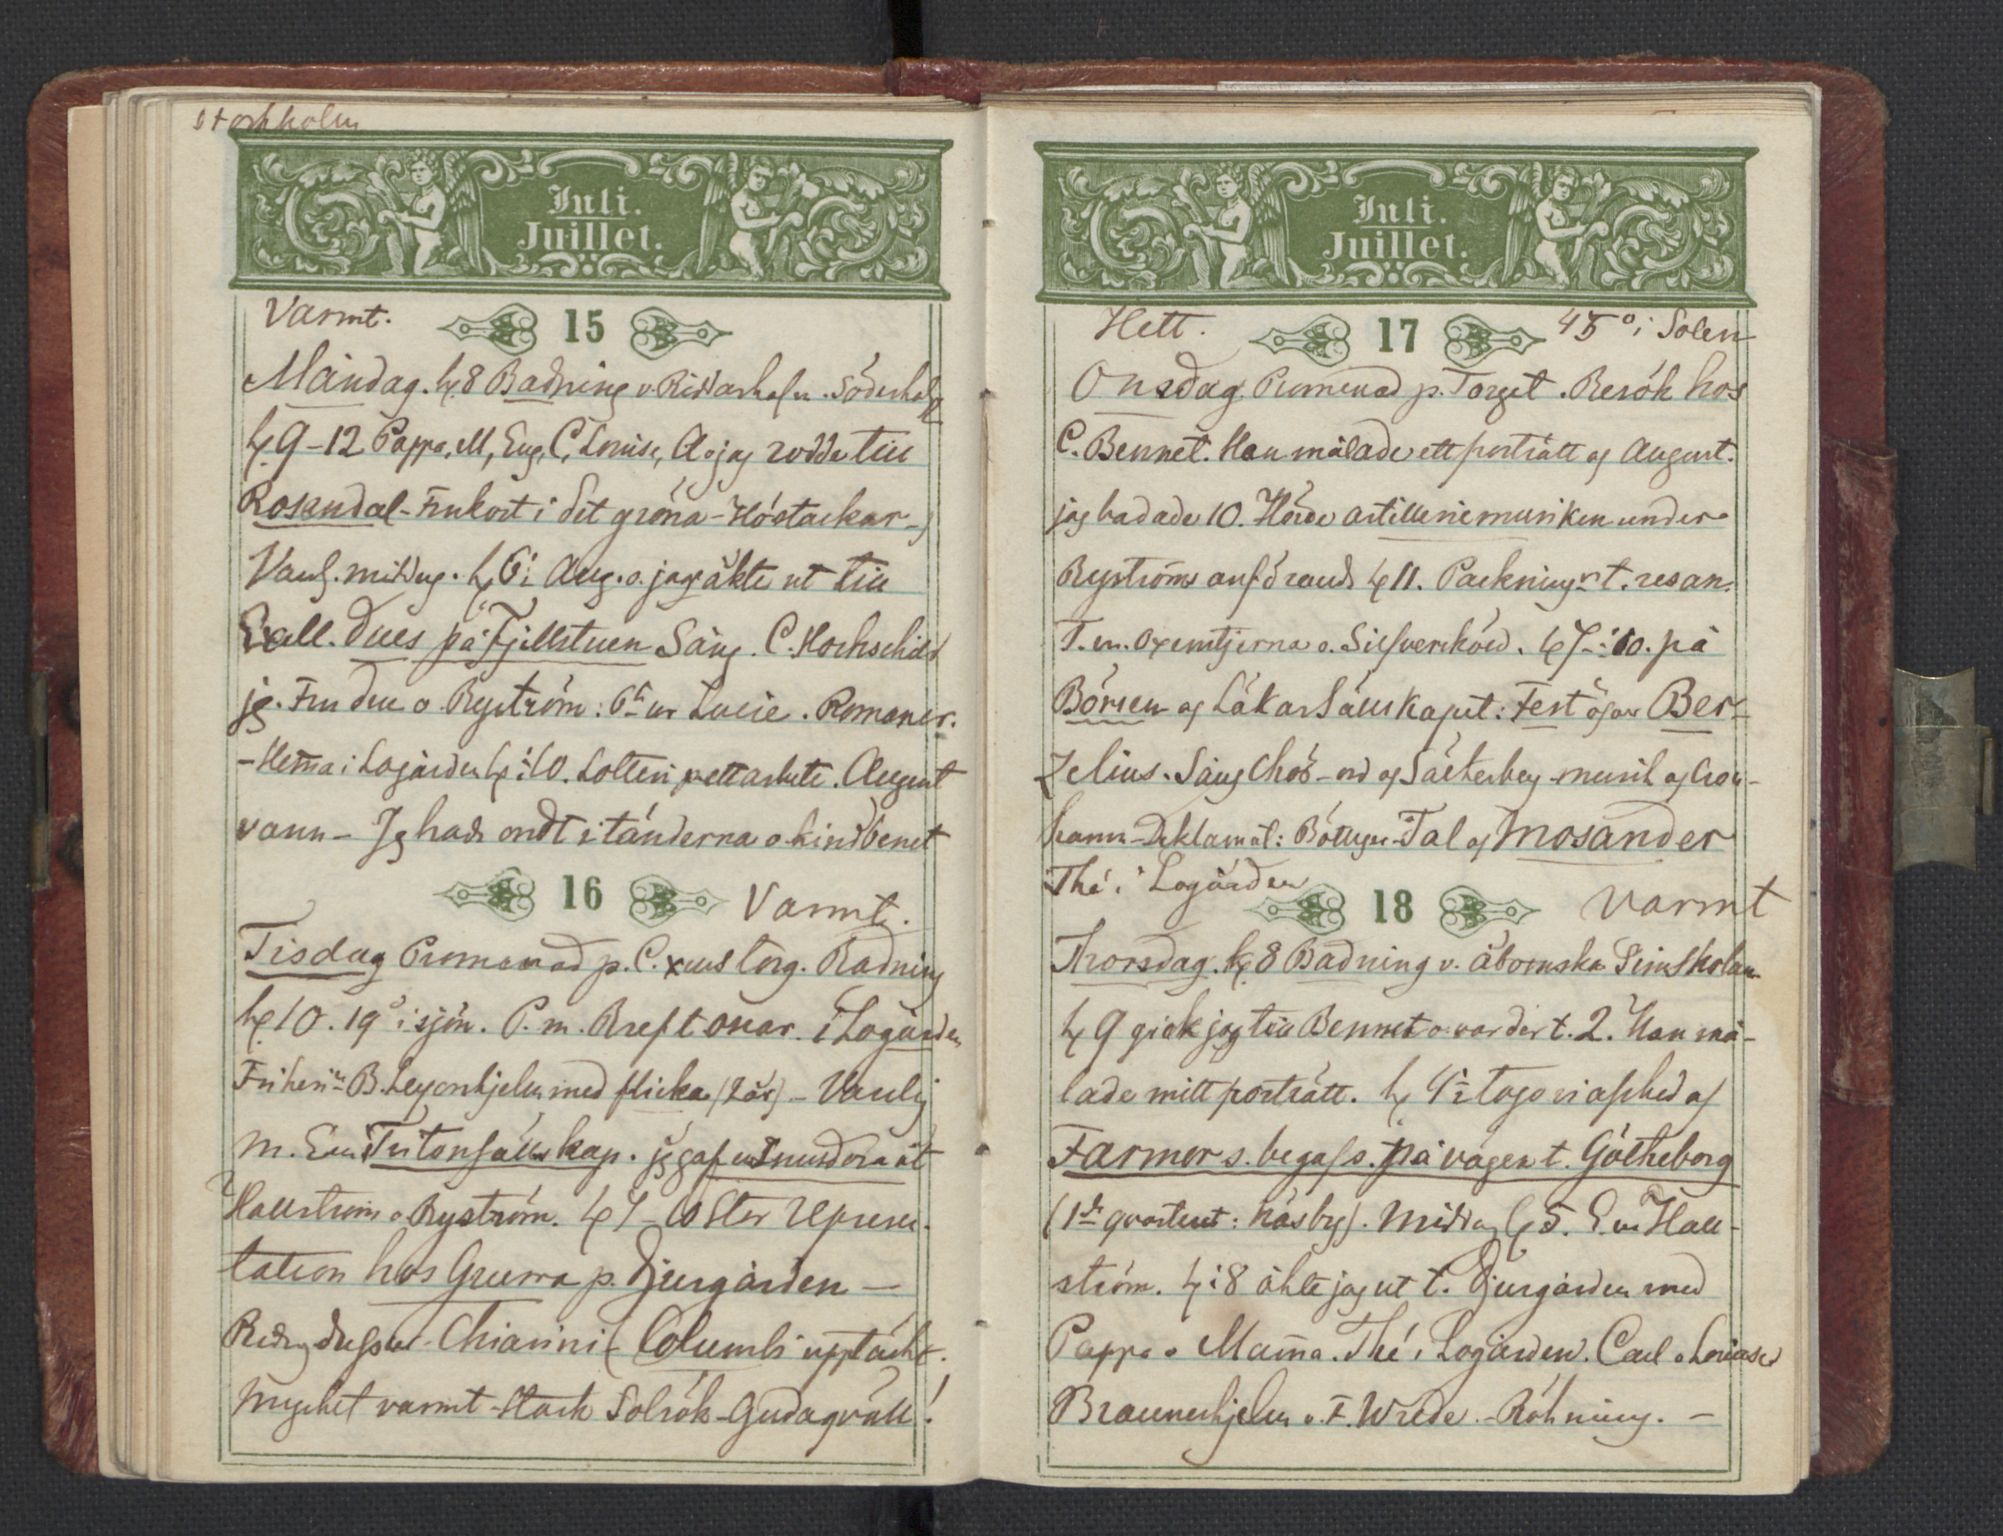 Stockholm
Juli.
Juillet.
Varmt. 15
Måndag. kl. 8 Badning v. Riddarholm. Söderhielm
kl. 9-12 Pappa, M, Eug, C, Louise, A o jag rodde till
Rosendal - Frukost i det gröna - Höstackar -
Vanl. middag. kl. 6 Aug. o. jag åkte ut till
Exall. Dues på Fjellstuen Sång. C. Hochschild
jg. Fru Due o Byström: ur Lucie. Romaner.
- Hemma i Logården kl. 10. Lotteri ett arbete. August
vann - Jg hade ondt i tänderna o. kindbenet
16 Varmt.
Tisdag Promenad p. C. torg. Badning
kl. 10. 19° i sjön. P. m. Bref t Oscar. i Logården
Friherin B. Leyonhjelm med flicka (Lär) - Vanlig
M. Em Tritonsällskap. jg gaf ut åt
Hallström o Byström. kl 7-10 Stor Repræsen-
tation hos Guerra p. Djurgården -
Chiarini (Columbi uppteckt.
Mycket varmt - stark Solrök - Gudagväll!
Juli.
Juillet.
Hett. 17 45° i Solen
Onsdag. Promenad p. Torget. Besök hos
C. Bennet. Han målade ett porträtt af August.
jag badade 10. Hörde artillerimusiken under
Byströms anförand kl 11. Packning t. resan.
T. m. Oxenstjerna o. Silfversköld. kl 7-10. på
Börsen af Läkar Sällskapet: Fest öfver Ber-
zelius. Sång Chör - ord af Sätherberg musik af Cron-
hamn - Deklamat: Böttiger - Tal af Mosander
Thé i Logården
18 Varmt
Thorsdag. kl. 8 Badning v. Åbomska Simskolan
kl 9 gick jag till Bennet o. var der t. 2. Han må-
lade mitt porträtt. kl 4½ togo vi afsked af
Farmor s. begaf s. på vägen t. Götheborg
(1sta qvarteret: Näsby). Middag kl 5. Em Hall-
ström. kl 8 åkte jag ut t. Djurgården med
Pappa o Mamma. Thé i Logården. Carl o Louise
Braunerhjelm o. F. Wrede. - Rökning. -